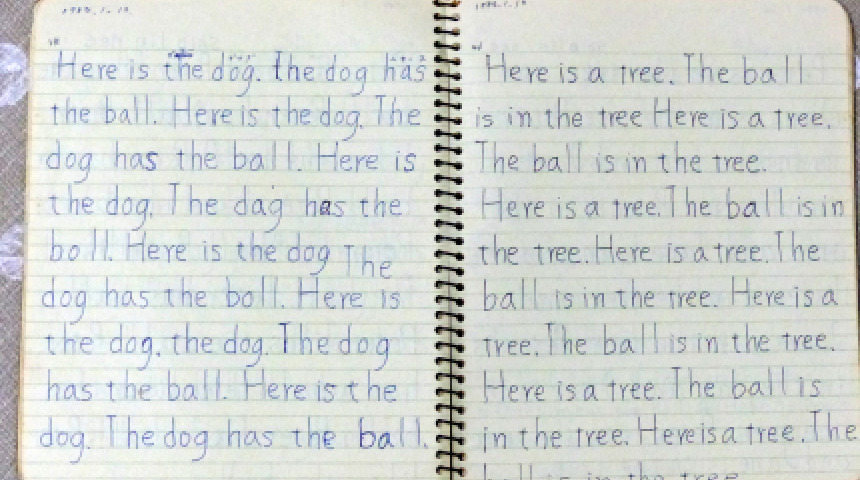 Here is the dog. The dog has
the ball. Here is the dog. The
dog has the ball. Here is
the dog. The dag has the
boll. Here is the dog The
dog has the boll. Here is
the dog, the dog. The dog
has the ball. Here is the
dog. The dog has the ball.
Here is a tree. The ball
is in the tree Here is a tree.
The ball is in the tree.
Here is a tree. The ball is in
the tree. Here is a tree. The
ball is in the tree. Here is a
tree. The ball is in the tree.
Here is a tree. The ball is
in the tree. Here is a tree. The
ball is in the tree